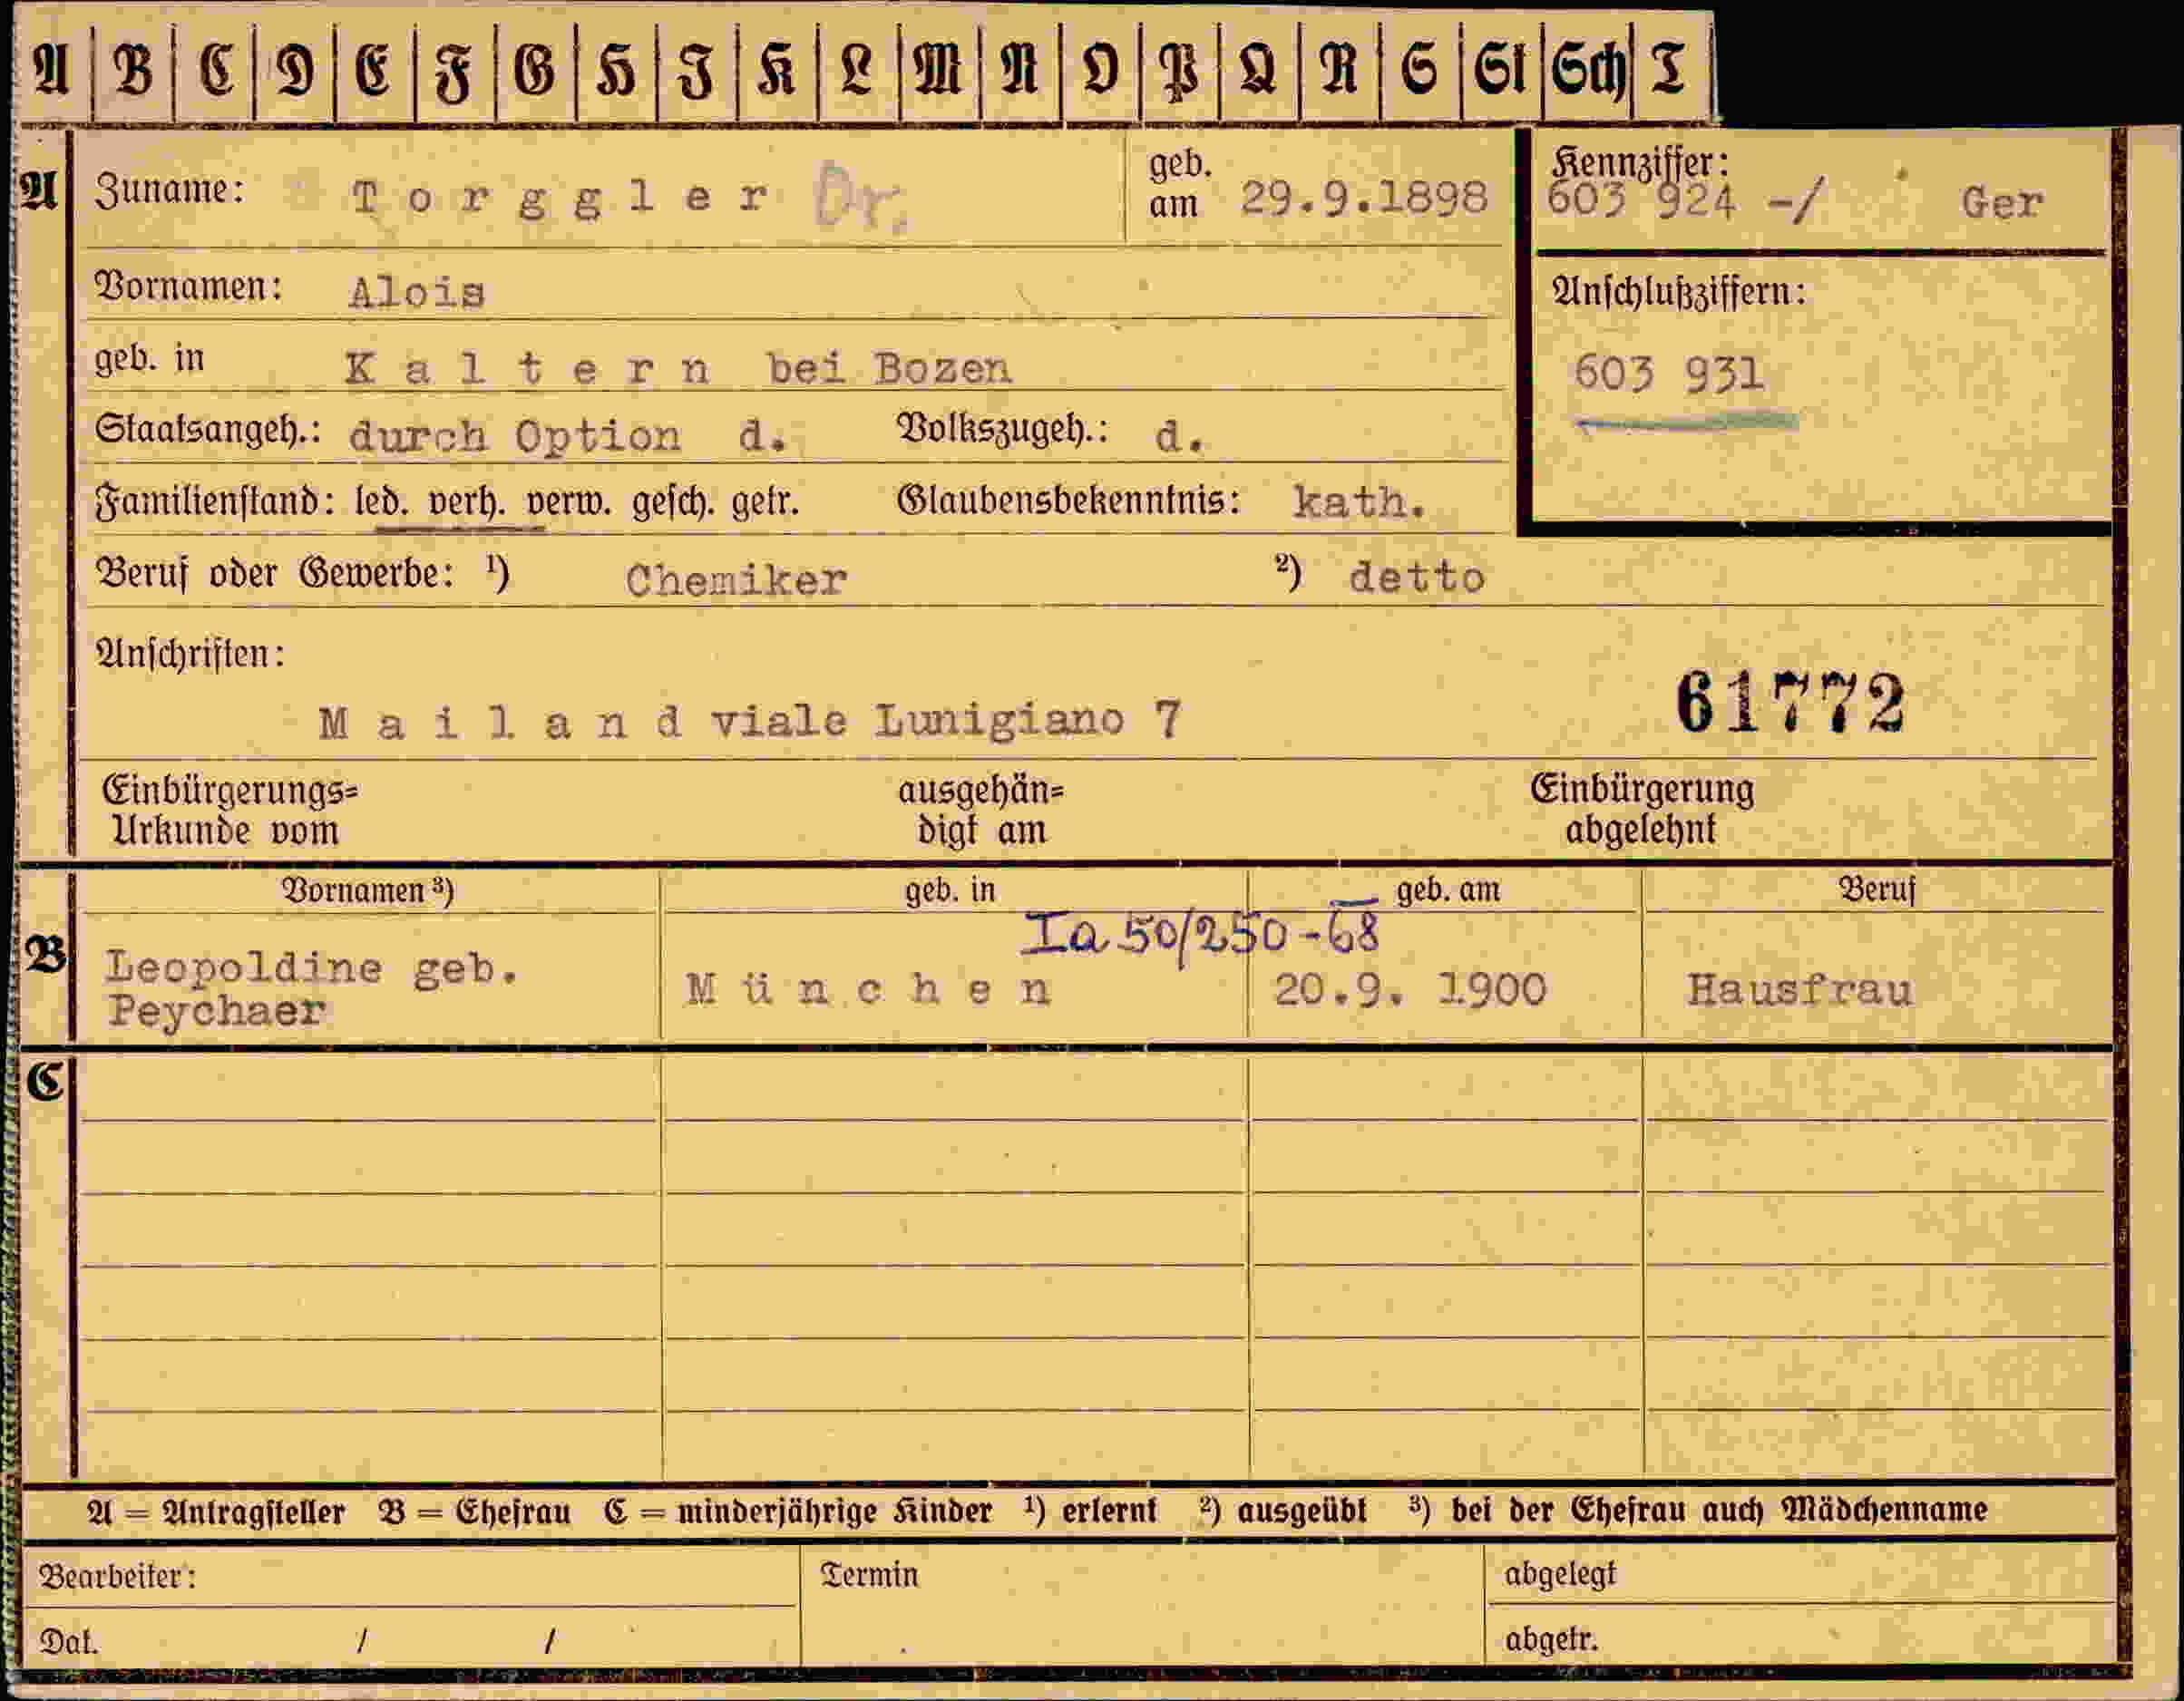 A B C D E F G H J K L M N O P Q R S St Sch T
A Zuname: Torggler Dr. geb. am 29.9.1898 Kennziffer: 603 924 -/ Ger
Vornamen: Alois Anschlußziffern:
geb. in Kaltern bei Bozen 603 931
Staatsangeh.: durch Option d. Volkszugeh.: d.
Familienstand: led. verh. verw. gesch. getr. Glaubensbekenntnis: kath.
Beruf oder Gewerbe: ¹) Chemiker ²) detto
Anschriften:
Mailand viale Lunigiano 7 61772
Einbürgerungs= ausgehän= Einbürgerung
Urkunde vom digt am abgelehnt
Vornamen ³) geb. in geb. am Beruf
Ia 50/250-68
B Leopoldine geb. München 20.9. 1900 Hausfrau
Peychaer
C
A = Antragsteller B = Ehefrau C = minderjährige Kinder ¹) erlernt ²) ausgeübt ³) bei der Ehefrau auch Mädchenname
Bearbeiter: Termin abgelegt
Dat. / / abgetr.